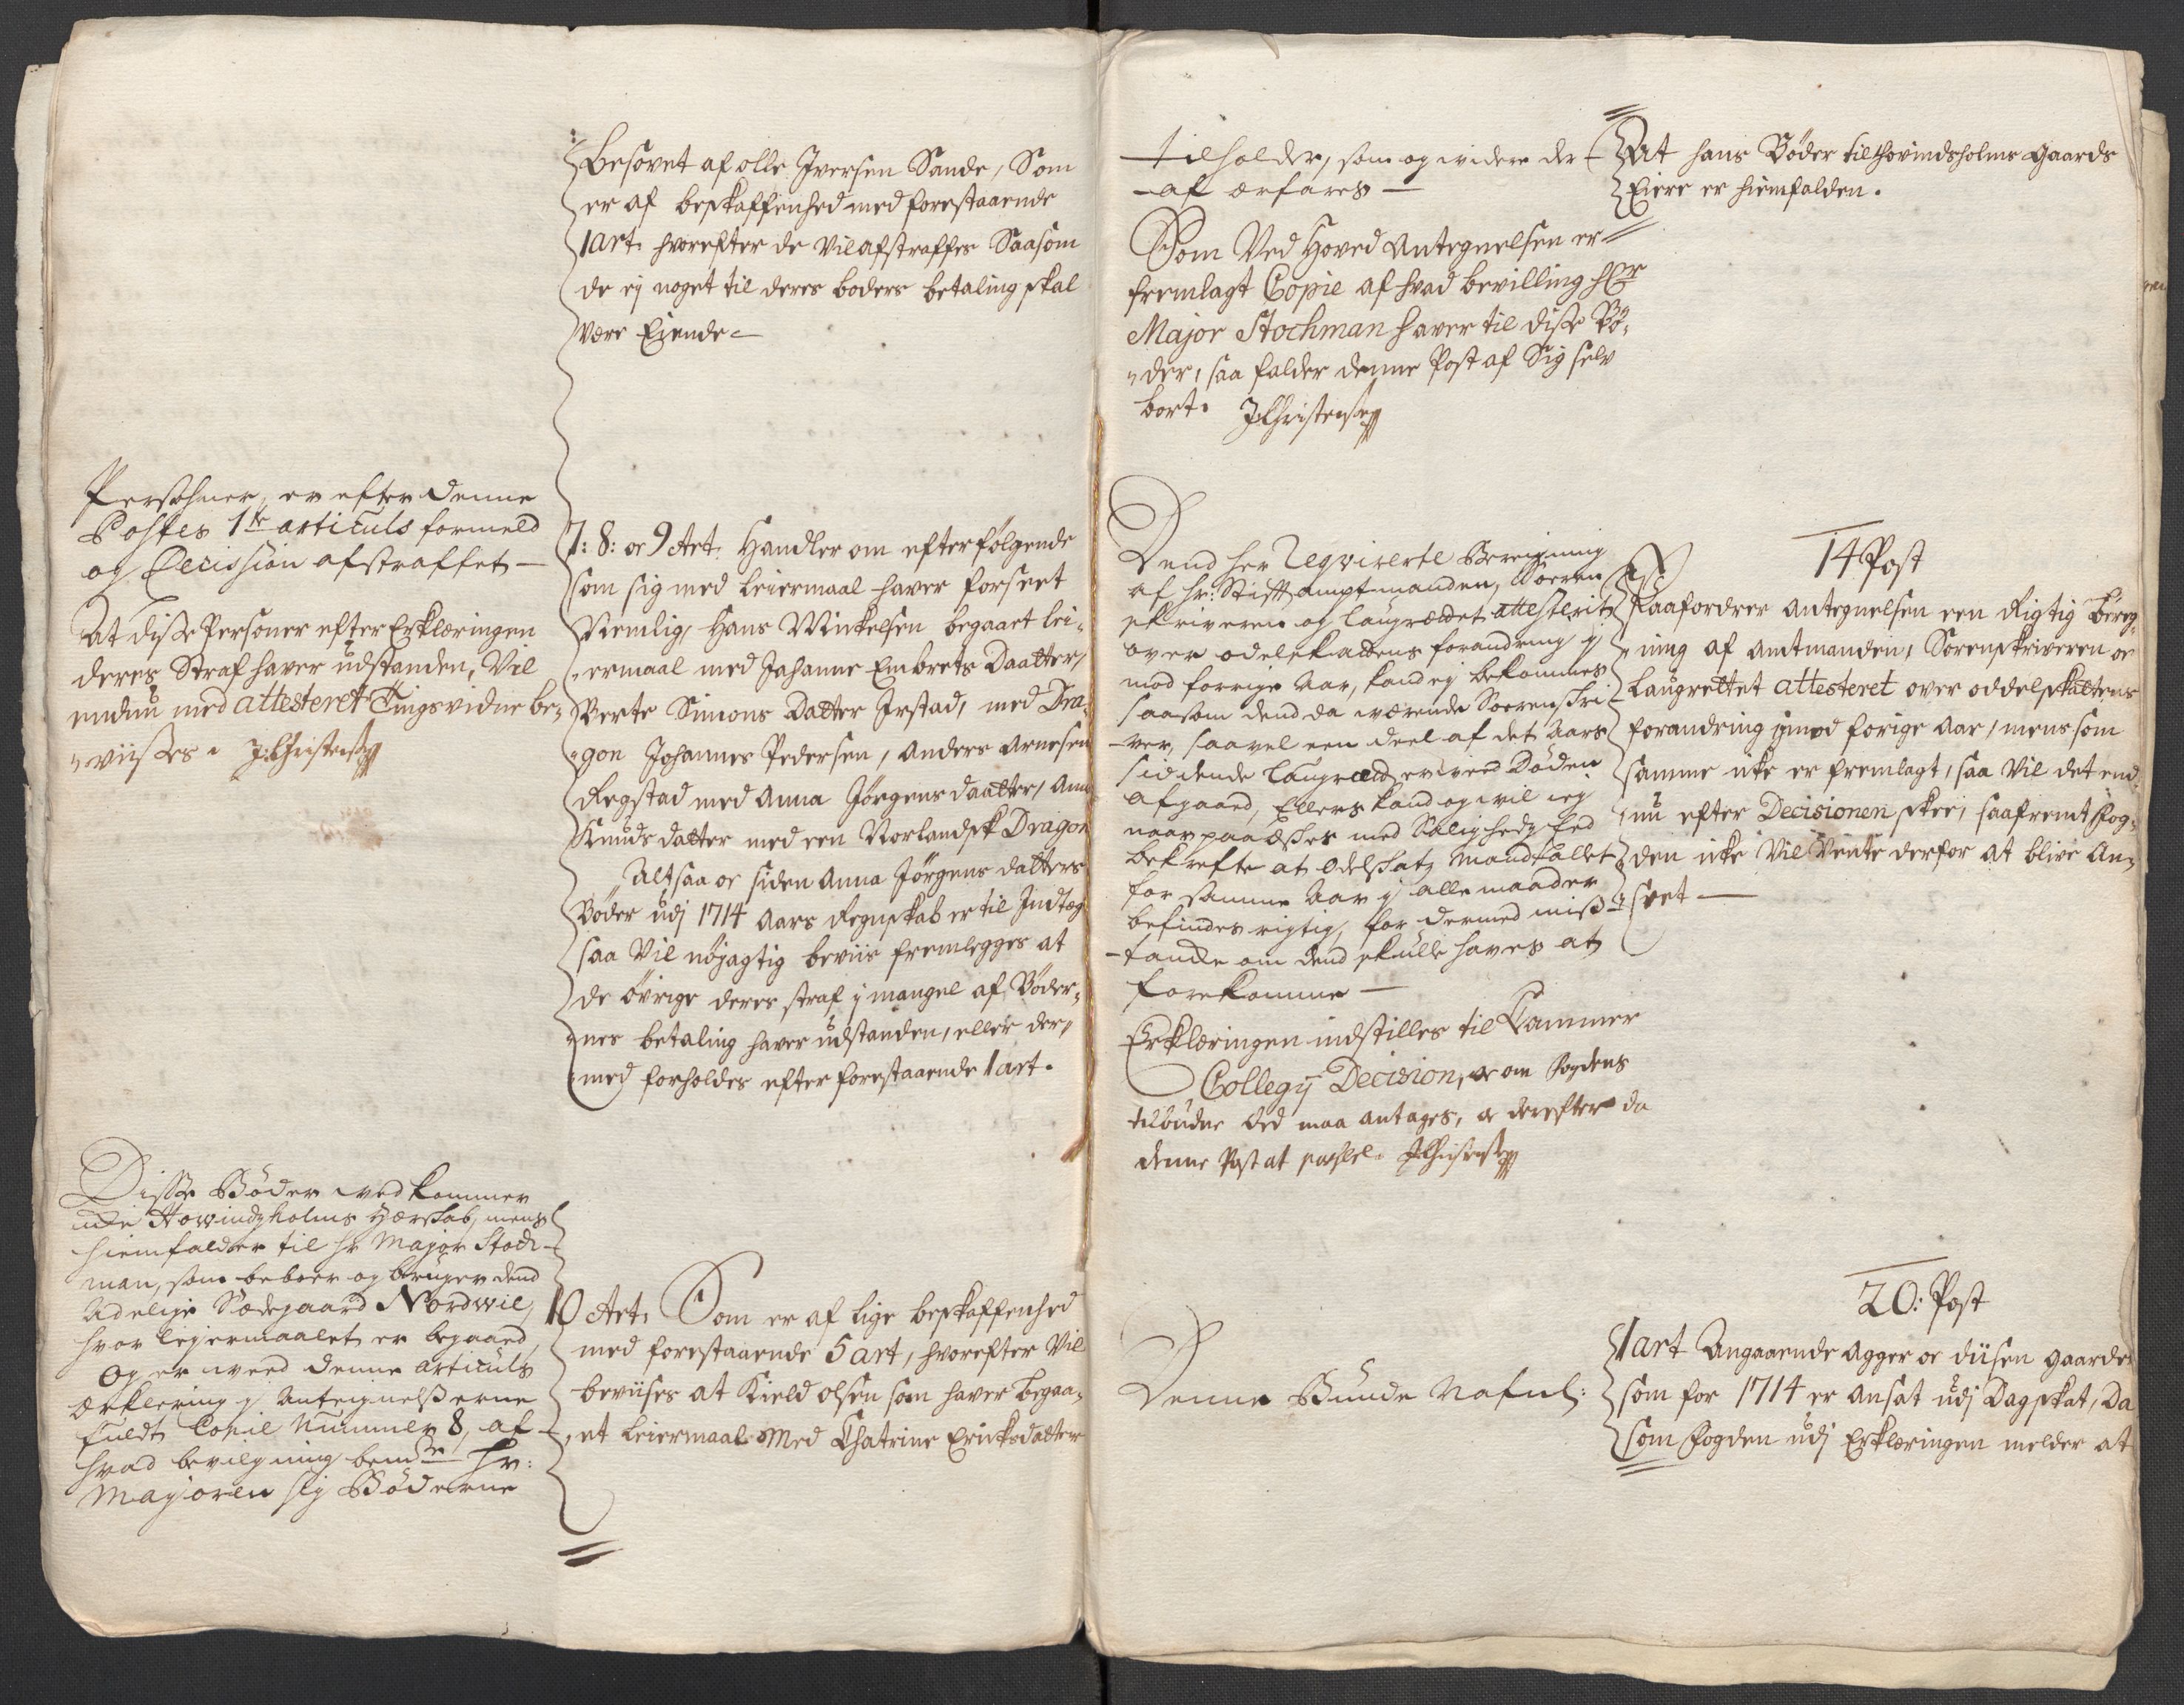 Besovet af olle Iversen Sande, Som
er af beskaffenhed med forestaaende
1 art. hvorefter de Vil afstraffes Saasom
de ej noget til deres boders betaling skal
Være Eiende

Persohner, er efter denne
Postes 1te articuls formeld
og Decission afstraffet
At disse Personer efter Erklæringen
deres Straf haver udstanden, Vil
endnu med attesteret Tingsvidne be-
viises. J Christensen

7: 8: oc 9 Art. Handler om efterfølgende
som sig med leiermaal haver forseet
Nemlig, Hans Minkelsen begaaet lei-
ermaal med Johanne Embrets Daatter,
Berte Simons Datter Irstad, med Dra-
gon Johannes Pedersen, Anders Arnesen
Regstad med Anna Jørgens daatter, Anne
Knuds datter med een Norlandsk Dragon
Altsaa oc siden Anna Jørgens datters
Bøder udj 1714 Aars Regnskab er til Indtægt
saa Vil nøjagtig beviis fremlegges at
de øvrige deres straf j mangel af Bøder-
nes betaling haver udstanden, eller der-
med forholdes efter forestaaende 1 art.

Disse Bøder ved kommer
icke Howindzholms Herskab, mens
hiemfalder til hr Major Stoch-
man, som beboer og bruger dend
Adelige Sædegaard Nordwie,
hvor lejermaalet er begaaed,
Og er weed denne articuls
Erklering j Antegnelsserne
fuldt Copie Nummer 8, af
hvad bevilgning bemte Hr:
Majoren sig Bøderne

10 Art. Som er af lige beskaffenhed
med forestaaende 5 art, hvorefter Vil
beviises at Kield olsen som haver begaa-
et leiermaal Med Chatrine Ericksdatter

tilholder, som og widere der
af erfares
Som Ved Hoved Antegnelsen er
fremlagt Copie af hvad bevilling Hr
Major Stochman haver til disse Bø-
der, saa falder denne Post af Sig selv
bort. J Christensen

At hans Bøder til Hovindsholms Gaards
Eiere er hiemfalden.

Dend her Reqvirerte Beregning
af hr: Stiftamptmanden, Soeren
skriveren og laugrettet attesterit
over odelskattens forandring j
mod forrige Aar, kand ej bekommes
saasom dend da værende Soerenskri-
ver, saavel een deel af det Aars
siddende laugræt er ved Døden
afgaaed, Ellers kand og vil ieg
naar paaæsches med Saligheds Eed
bekrefte at Odelschatz Mandtallet
for samme Aar j alle maader
befindes rigtig, for dermed miss-
tancke om dend skulle haves at
forekomme
Erklæringen indstilles til Cammer
Collegij Decision, oc om Fogdens
tilbudne Eed maa antages, oc derefter da
denne Post at passere. J Christensen

14 Post
Paafordrer Antegnelsen een Rigtig Bereg-
ning af Amtmanden, Sorenskriveren oc
Laugrettet attesteret over oddelskattens
forandring imod forige Aar, mens som
samme icke er fremlagt, saa Vil det end-
nu efter Decisionen skee, saafremt Fog-
den icke Vil Vente derfor at blive An-
seet

20: Post
Denne Bunde
1 art Angaaende Agger oc Diisen gaarde
som for 1714 er Ansat udj Dagskat, Da
som Fogden udj Erklæringen melder at